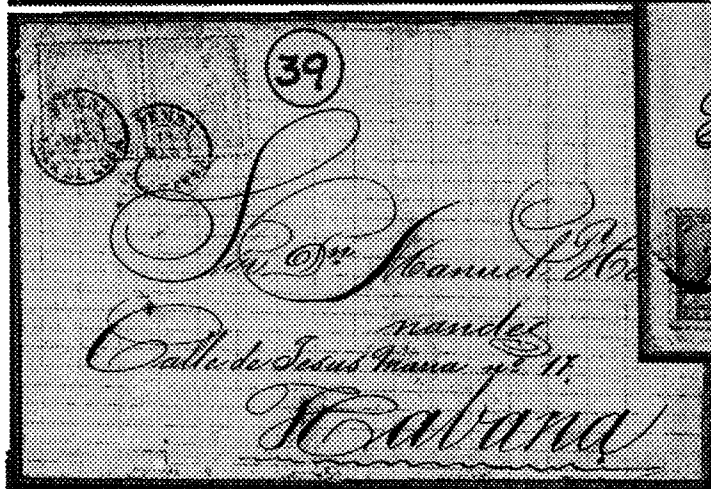 39
Sor. Dn. Manuel He
nandez
Calle de Jesus Maria nº 17.
Habana